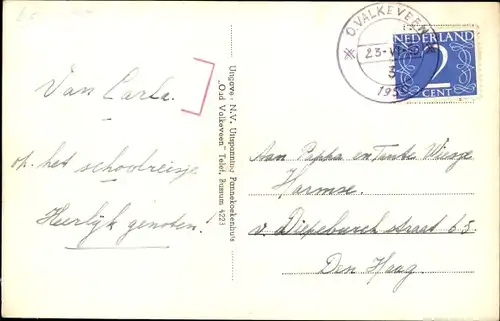 Van Carla.
op het schoolreisje
Heerlijk genoten!
Uitgave: N.V. Uitspanning Pannekoekenhuis
„Oud Valkeveen" Telef. Bussum 4223
O.VALKEVEEN
23-VI
3
195
NEDERLAND
2
CENT
Aan Pappa en Tante Wiesje
Harmse.
v. Diepenburch straat 65.
Den Haag.